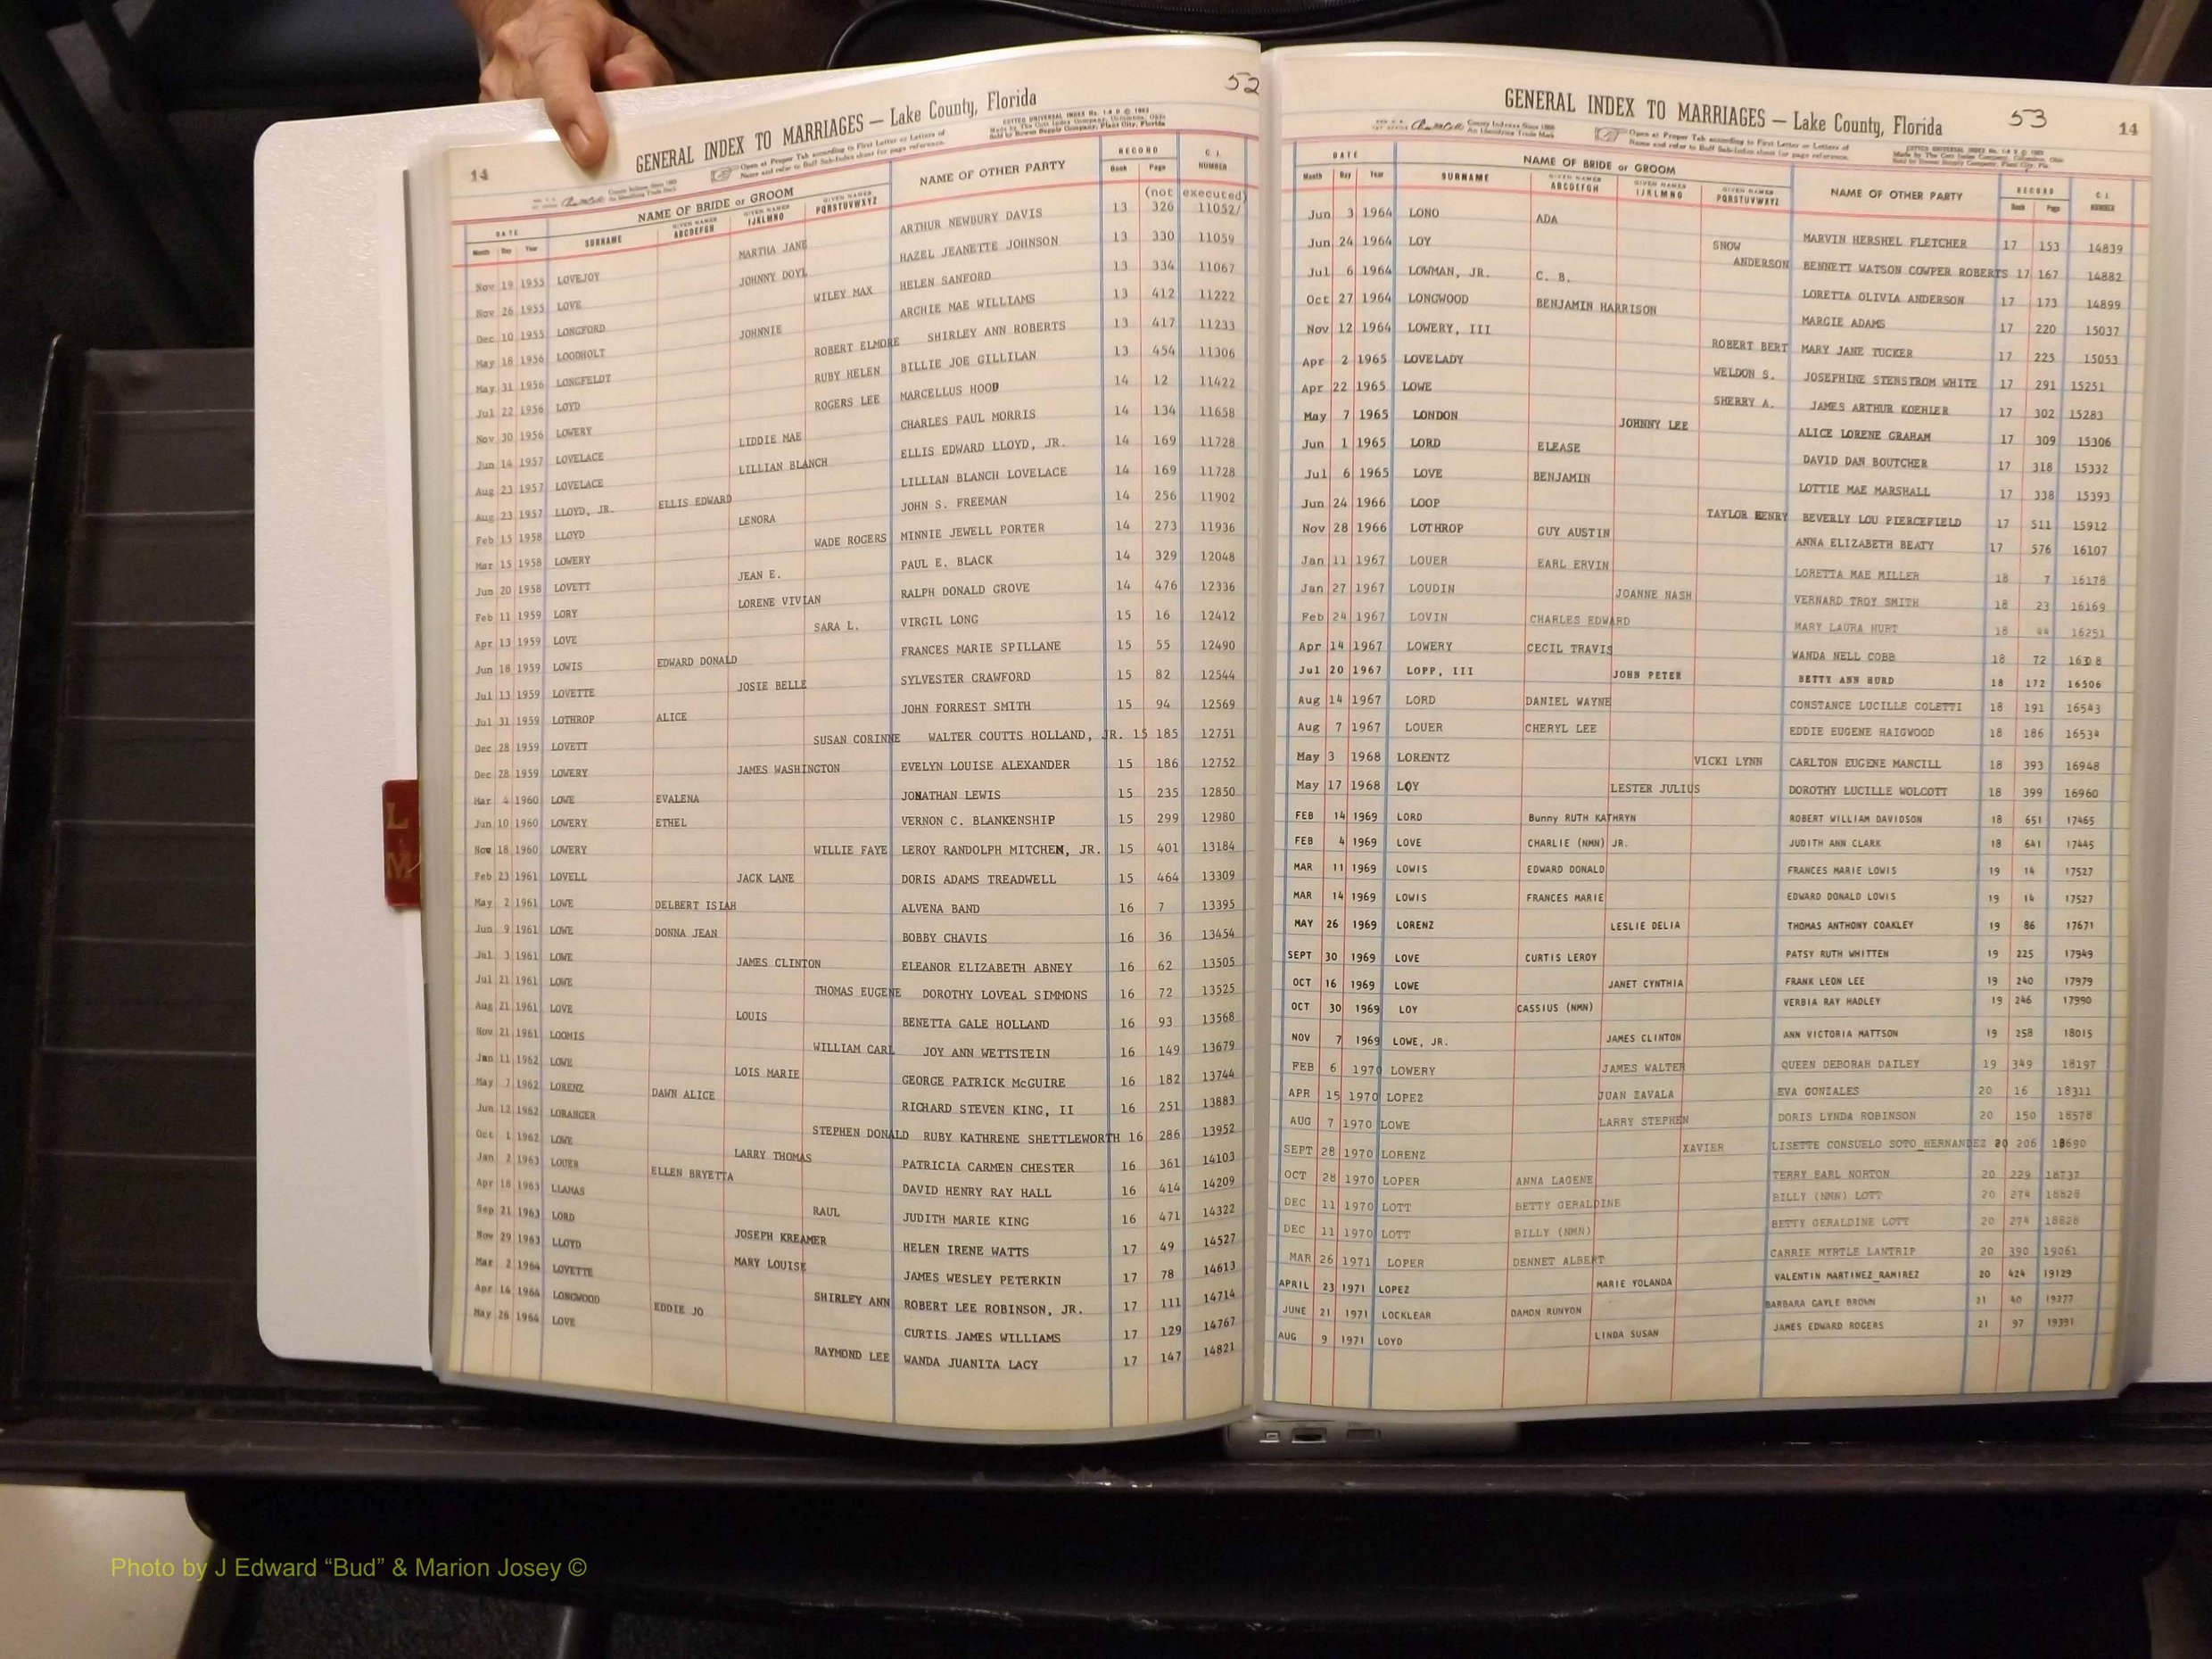 14
52
GENERAL INDEX TO MARRIAGES — Lake County, Florida
Open at Proper Tab according to First Letter or Letters of
Name and refer to Buff Sub-Index sheet for page reference.
DATE NAME OF BRIDE or GROOM NAME OF OTHER PARTY RECORD C. I. NUMBER
Month Day Year SURNAME GIVEN NAMES ABCDEFGH GIVEN NAMES IJKLMNO GIVEN NAMES PQRSTUVWXYZ Book Page
(not executed)
Nov 19 1955 LOVEJOY MARTHA JANE ARTHUR NEWBURY DAVIS 13 326 11052/
Nov 26 1955 LOVE JOHNNY DOYL HAZEL JEANETTE JOHNSON 13 330 11059
Dec 10 1955 LONGFORD WILEY MAX HELEN SANFORD 13 334 11067
May 18 1956 LOODHOLT JOHNNIE ARCHIE MAE WILLIAMS 13 412 11222
May 31 1956 LONGFELDT ROBERT ELMORE SHIRLEY ANN ROBERTS 13 417 11233
Jul 22 1956 LOYD RUBY HELEN BILLIE JOE GILLILAN 13 454 11306
Nov 30 1956 LOWERY ROGERS LEE MARCELLUS HOOD 14 12 11422
Jun 14 1957 LOVELACE LIDDIE MAE CHARLES PAUL MORRIS 14 134 11658
Aug 23 1957 LOVELACE LILLIAN BLANCH ELLIS EDWARD LLOYD, JR. 14 169 11728
Aug 23 1957 LLOYD, JR. ELLIS EDWARD LILLIAN BLANCH LOVELACE 14 169 11728
Feb 15 1958 LLOYD LENORA JOHN S. FREEMAN 14 256 11902
Mar 15 1958 LOWERY WADE ROGERS MINNIE JEWELL PORTER 14 273 11936
Jun 20 1958 LOVETT JEAN E. PAUL E. BLACK 14 329 12048
Feb 11 1959 LORY LORENE VIVIAN RALPH DONALD GROVE 14 476 12336
Apr 13 1959 LOVE SARA L. VIRGIL LONG 15 16 12412
Jun 18 1959 LOWIS EDWARD DONALD FRANCES MARIE SPILLANE 15 55 12490
Jul 13 1959 LOVETTE JOSIE BELLE SYLVESTER CRAWFORD 15 82 12544
Jul 31 1959 LOTHROP ALICE JOHN FORREST SMITH 15 94 12569
Dec 28 1959 LOVETT SUSAN CORINNE WALTER COUTTS HOLLAND, JR. 15 185 12751
Dec 28 1959 LOWERY JAMES WASHINGTON EVELYN LOUISE ALEXANDER 15 186 12752
Mar 4 1960 LOWE EVALENA JONATHAN LEWIS 15 235 12850
Jun 10 1960 LOWERY ETHEL VERNON C. BLANKENSHIP 15 299 12980
Nov 18 1960 LOWERY WILLIE FAYE LEROY RANDOLPH MITCHEM, JR. 15 401 13184
Feb 23 1961 LOVELL JACK LANE DORIS ADAMS TREADWELL 15 464 13309
May 2 1961 LOWE DELBERT ISIAH ALVENA BAND 16 7 13395
Jun 9 1961 LOWE DONNA JEAN BOBBY CHAVIS 16 36 13454
Jul 3 1961 LOWE JAMES CLINTON ELEANOR ELIZABETH ABNEY 16 62 13505
Jul 21 1961 LOWE THOMAS EUGENE DOROTHY LOVEAL SIMMONS 16 72 13525
Aug 21 1961 LOVE LOUIS BENETTA GALE HOLLAND 16 93 13568
Nov 21 1961 LOOMIS WILLIAM CARL JOY ANN WETTSTEIN 16 149 13679
Jan 11 1962 LOWE LOIS MARIE GEORGE PATRICK McGUIRE 16 182 13744
May 7 1962 LORENZ DAWN ALICE RICHARD STEVEN KING, II 16 251 13883
Jun 12 1962 LORANGER STEPHEN DONALD RUBY KATHRENE SHETTLEWORTH 16 286 13952
Oct 1 1962 LOWE LARRY THOMAS PATRICIA CARMEN CHESTER 16 361 14103
Jan 2 1963 LOUER ELLEN BRYETTA DAVID HENRY RAY HALL 16 414 14209
Apr 18 1963 LLAMAS RAUL JUDITH MARIE KING 16 471 14322
Sep 21 1963 LORD JOSEPH KREAMER HELEN IRENE WATTS 17 49 14527
Nov 29 1963 LLOYD MARY LOUISE JAMES WESLEY PETERKIN 17 78 14613
Mar 2 1964 LOVETTE SHIRLEY ANN ROBERT LEE ROBINSON, JR. 17 111 14714
Apr 14 1964 LONGWOOD EDDIE JO CURTIS JAMES WILLIAMS 17 129 14767
May 26 1964 LOVE RAYMOND LEE WANDA JUANITA LACY 17 147 14821
L
M
GENERAL INDEX TO MARRIAGES — Lake County, Florida
53
14
Open at Proper Tab according to First Letter or Letters of
Name and refer to Buff Sub-Index sheet for page reference.
DATE NAME OF BRIDE or GROOM NAME OF OTHER PARTY RECORD C. I. NUMBER
Month Day Year SURNAME GIVEN NAMES ABCDEFGH GIVEN NAMES IJKLMNO GIVEN NAMES PQRSTUVWXYZ Book Page
Jun 3 1964 LONO ADA MARVIN HERSHEL FLETCHER 17 153 14839
Jun 24 1964 LOY SNOW ANDERSON BENNETT WATSON COWPER ROBERTS 17 167 14882
Jul 6 1964 LOWMAN, JR. C. B. LORETTA OLIVIA ANDERSON 17 173 14899
Oct 27 1964 LONGWOOD BENJAMIN HARRISON MARGIE ADAMS 17 220 15037
Nov 12 1964 LOWERY, III ROBERT BERT MARY JANE TUCKER 17 225 15053
Apr 2 1965 LOVELADY WELDON S. JOSEPHINE STENSTROM WHITE 17 291 15251
Apr 22 1965 LOWE SHERRY A. JAMES ARTHUR KOEHLER 17 302 15283
May 7 1965 LONDON JOHNNY LEE ALICE LORENE GRAHAM 17 309 15306
Jun 1 1965 LORD ELEASE DAVID DAN BOUTCHER 17 318 15332
Jul 6 1965 LOVE BENJAMIN LOTTIE MAE MARSHALL 17 338 15393
Jun 24 1966 LOOP TAYLOR HENRY BEVERLY LOU PIERCEFIELD 17 511 15912
Nov 28 1966 LOTHROP GUY AUSTIN ANNA ELIZABETH BEATY 17 576 16107
Jan 11 1967 LOUER EARL ERVIN LORETTA MAE MILLER 18 7 16178
Jan 27 1967 LOUDIN JOANNE NASH VERNARD TROY SMITH 18 23 16169
Feb 24 1967 LOVIN CHARLES EDWARD MARY LAURA HURT 18 44 16251
Apr 14 1967 LOWERY CECIL TRAVIS WANDA NELL COBB 18 72
Jul 20 1967 LOPP, III JOHN PETER BETTY ANN HURD 18 172 16506
Aug 14 1967 LORD DANIEL WAYNE CONSTANCE LUCILLE COLETTI 18 191 16543
Aug 7 1967 LOUER CHERYL LEE EDDIE EUGENE HAIGWOOD 18 186 16534
May 3 1968 LORENTZ VICKI LYNN CARLTON EUGENE MANCILL 18 393 16948
May 17 1968 LOY LESTER JULIUS DOROTHY LUCILLE WOLCOTT 18 399 16960
FEB 14 1969 LORD Bunny RUTH KATHRYN ROBERT WILLIAM DAVIDSON 18 651 17465
FEB 4 1969 LOVE CHARLIE (NMN) JR. JUDITH ANN CLARK 18 641 17445
MAR 11 1969 LOWIS EDWARD DONALD FRANCES MARIE LOWIS 19 14 17527
MAR 14 1969 LOWIS FRANCES MARIE EDWARD DONALD LOWIS 19 14 17527
MAY 26 1969 LORENZ LESLIE DELIA THOMAS ANTHONY COAKLEY 19 86 17671
SEPT 30 1969 LOVE CURTIS LEROY PATSY RUTH WHITTEN 19 225 17949
OCT 16 1969 LOWE JANET CYNTHIA FRANK LEON LEE 19 240 17979
OCT 30 1969 LOY CASSIUS (NMN) VERBIA RAY HADLEY 19 246 17990
NOV 7 1969 LOWE, JR. JAMES CLINTON ANN VICTORIA MATTSON 19 258 18015
FEB 6 1970 LOWERY JAMES WALTER QUEEN DEBORAH DAILEY 19 349 18197
APR 15 1970 LOPEZ JUAN ZAVALA EVA GONZALES 20 16 18311
AUG 7 1970 LOWE LARRY STEPHEN DORIS LYNDA ROBINSON 20 150 18578
SEPT 28 1970 LORENZ XAVIER LISETTE CONSUELO SOTO_HERNANDEZ 20 206 18690
OCT 28 1970 LOPER ANNA LAGENE TERRY EARL NORTON 20 229 18737
DEC 11 1970 LOTT BETTY GERALDINE BILLY (NMN) LOTT 20 274 18828
DEC 11 1970 LOTT BILLY (NMN) BETTY GERALDINE LOTT 20 274 18828
MAR 26 1971 LOPER DENNET ALBERT CARRIE MYRTLE LANTRIP 20 390 19061
APRIL 23 1971 LOPEZ MARIE YOLANDA VALENTIN MARTINEZ_RAMIREZ 20 424 19129
JUNE 21 1971 LOCKLEAR DAMON RUNYON BARBARA GAYLE BROWN 21 40 19277
AUG 9 1971 LOYD LINDA SUSAN JAMES EDWARD ROGERS 21 97 19391
Photo by J Edward “Bud” & Marion Josey ©